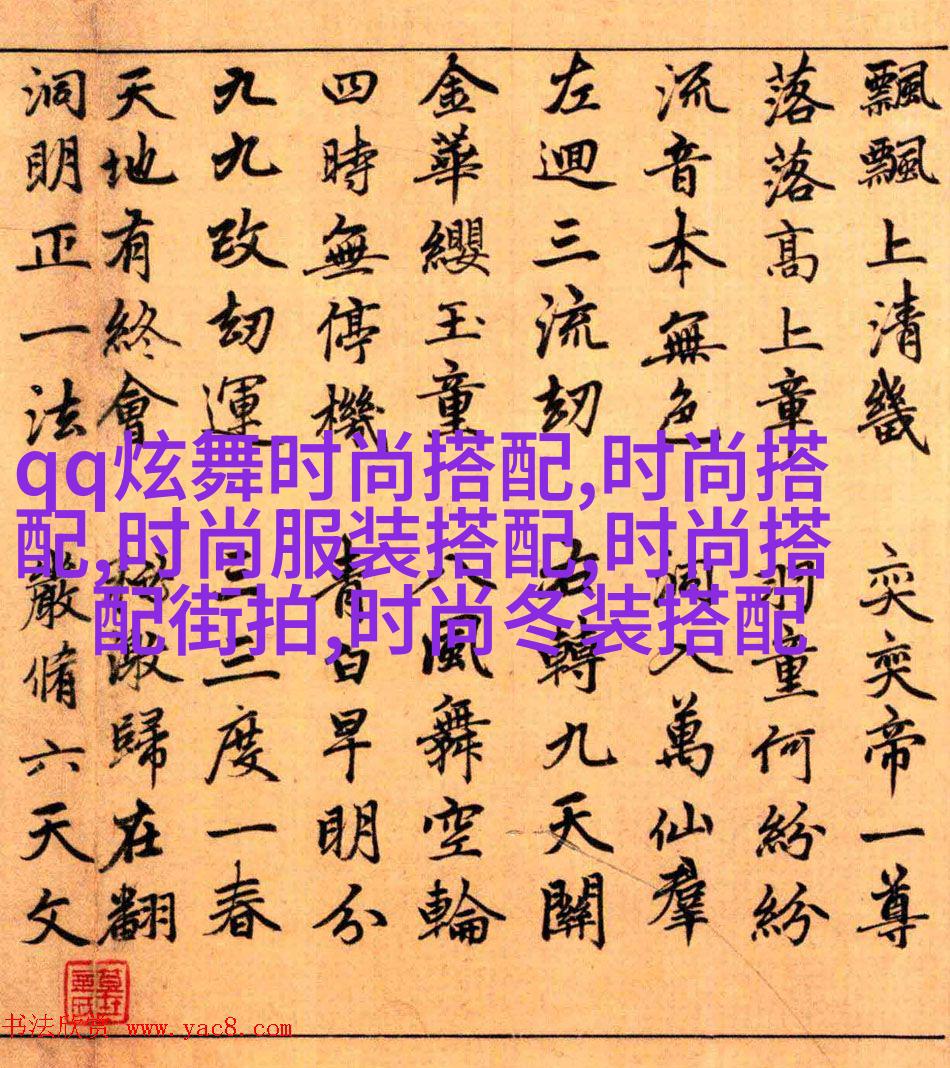 飄飄上清畿 奕奕帝一尊
落落高上章 重何紛紛
流音本無色 洞入萬仙羣
左迴三流刼 右轉九天關
金華纓玉童 八風舞空輪
四時無停機 青白早明分
九九改刼運 三三度一春
天地有終會 歸在翻
洞明正一法 嚴脩六天文
qq炫舞时尚搭配,时尚搭
配,时尚服装搭配,时尚搭
配街拍,时尚冬装搭配
书法欣赏 www.yac8.com